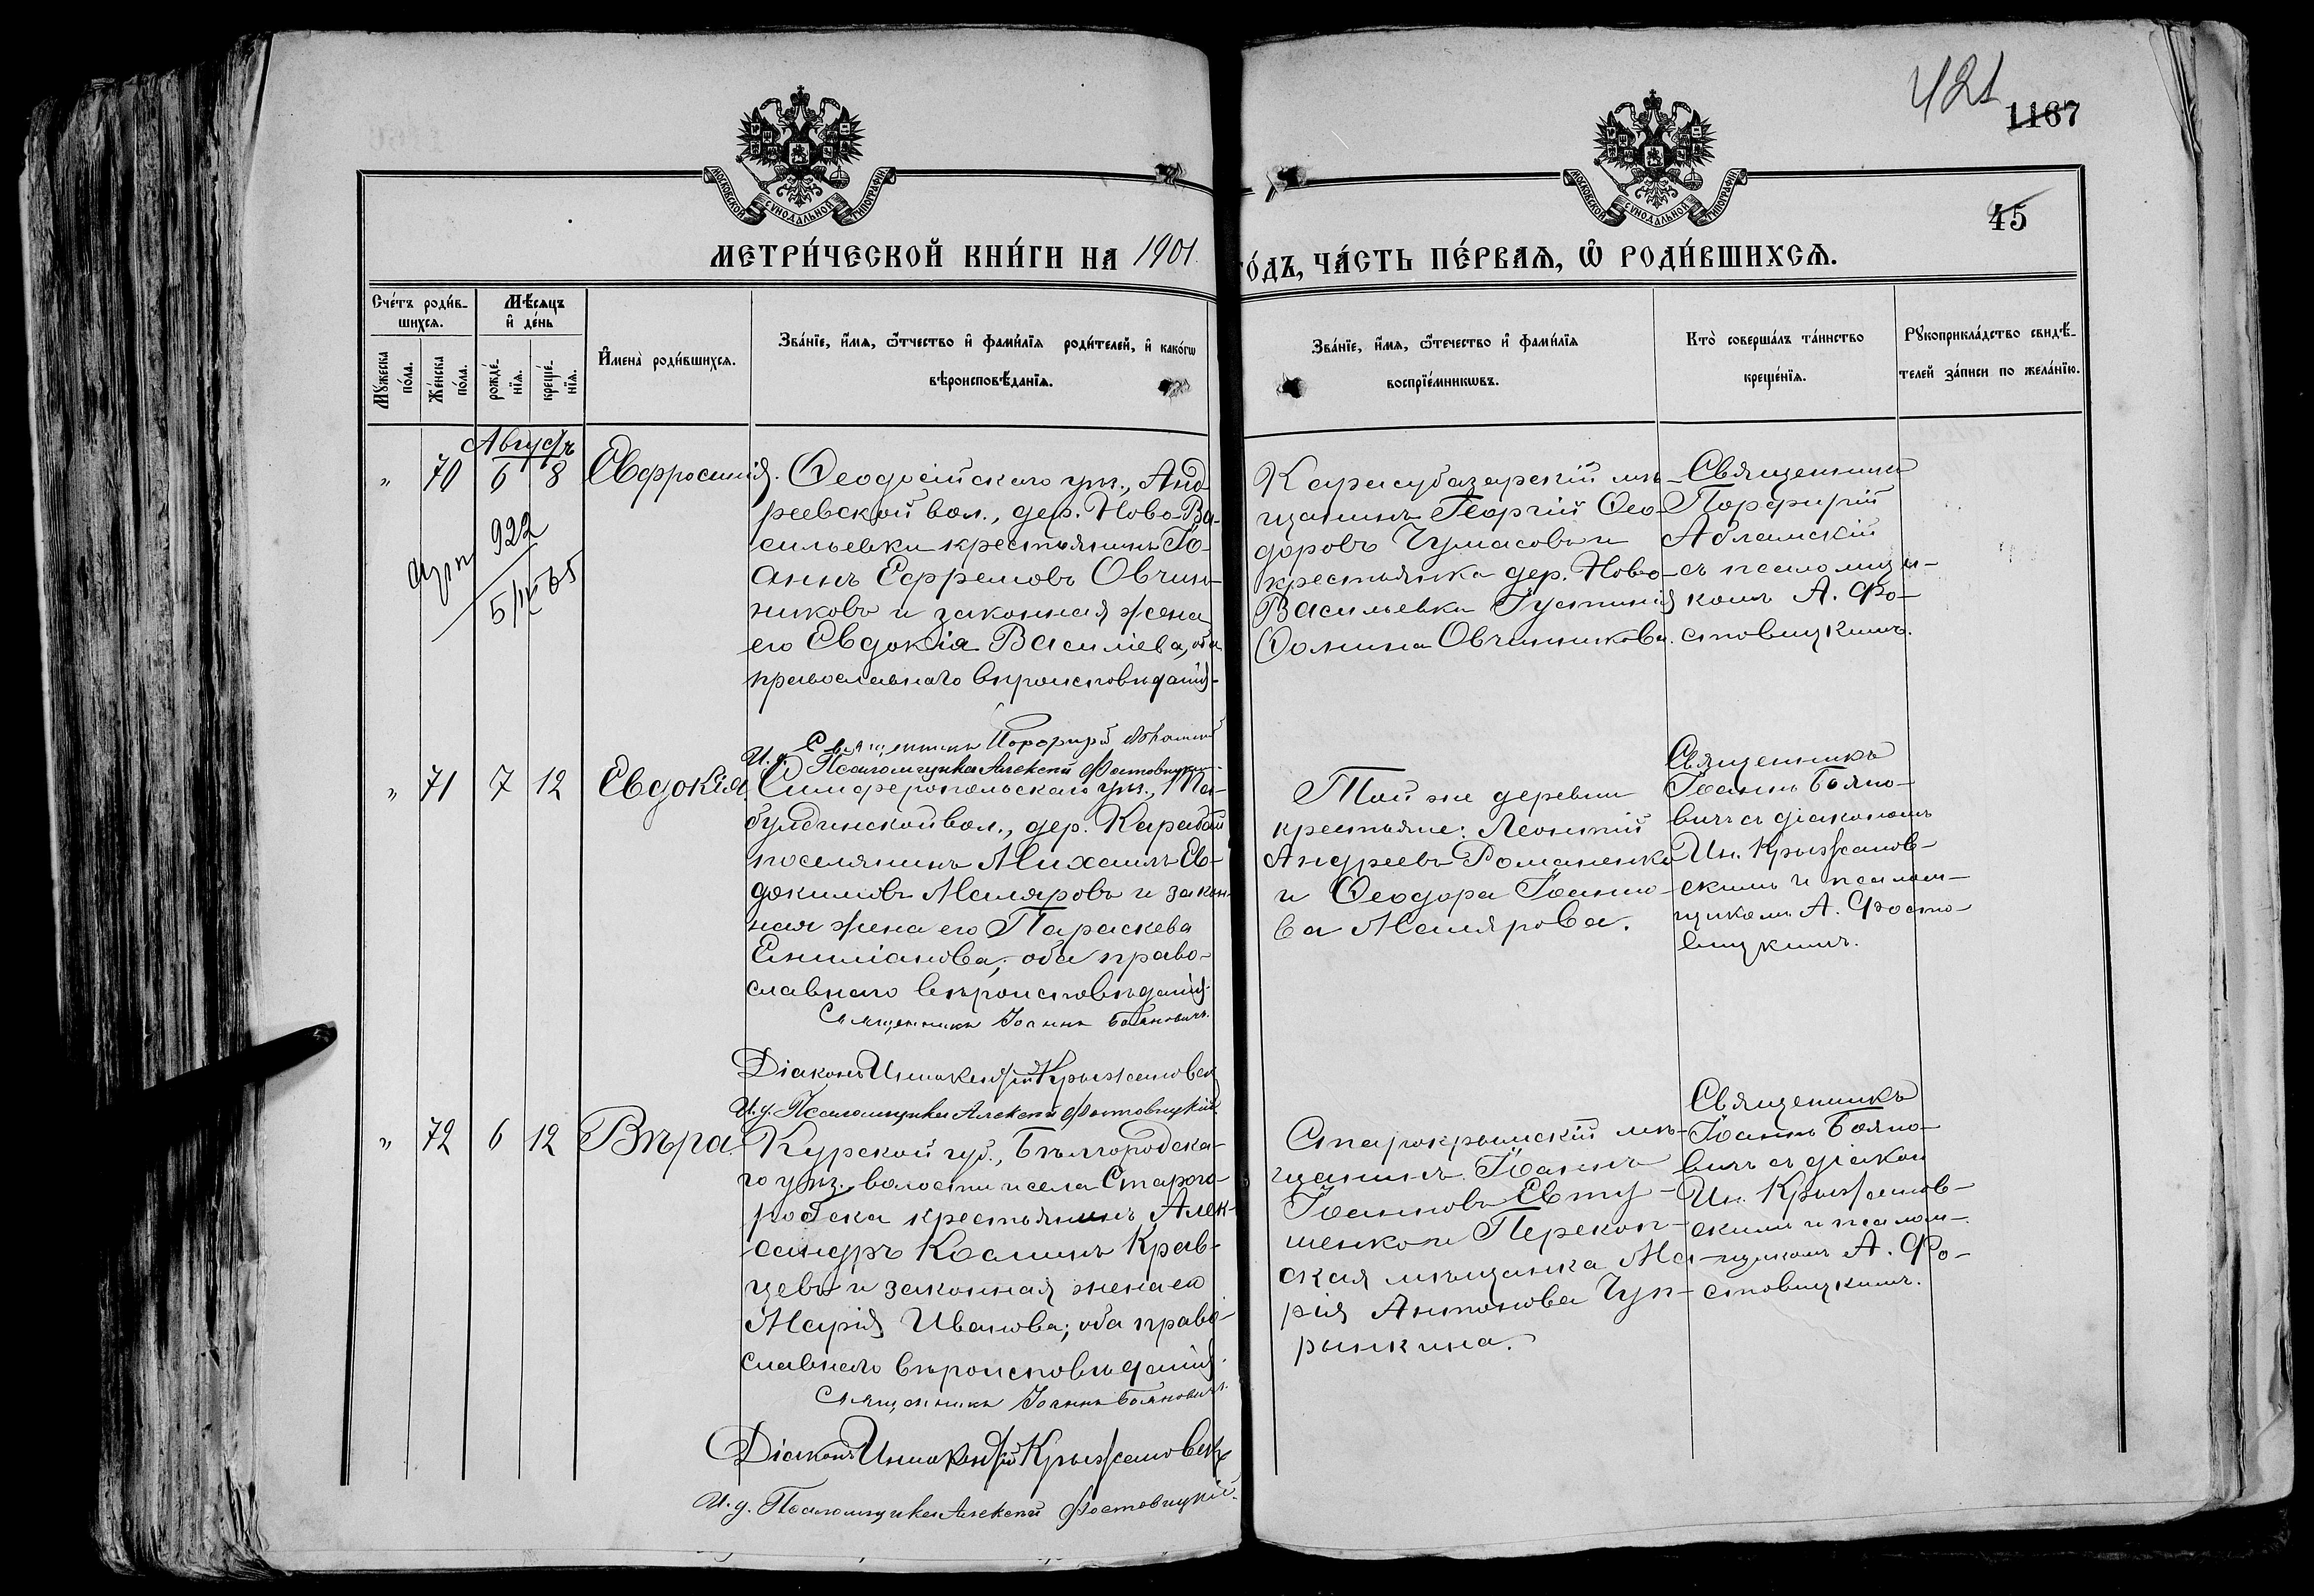 421
1167
45
МОСКОВСКОЙ СѴНОДАЛЬНОЙ ТИПОГРАФІИ
МОСКОВСКОЙ СѴНОДАЛЬНОЙ ТИПОГРАФІИ
МЕТРИ́ЧЕСКОЙ КНИ́ГИ НА 1901
ГО́ДЪ, ЧА́СТЬ ПЕ́РВАѦ, Ѡ҆ РОДИ́ВШИХСѦ.
Сче́тъ роди́в-
шихсѧ.
Мꙋ́жеска по́ла.
Же́нска по́ла.
Мѣ́сѧцъ
и҆ де́нь
рожде́-
нїѧ.
креще́-
нїѧ.
И҆мена̀ роди́вшихсѧ.
Зва́нїе, и҆́мѧ, ѻ҆́тчество и҆ фами́лїѧ роди́телей, и҆ како́гѡ
вѣроисповѣ́данїѧ.
Зва́нїе, и҆́мѧ, ѻ҆те́чество и҆ фами́лїѧ
воспрїе́мникѡвъ.
Кто̀ соверша́лъ та́инство
креще́нїѧ.
Рꙋкоприкла́дство свидѣ́-
телей за́писи по жела́нїю.
Августъ
" 70 6 8 Евфросинія.
922
5/IX 65
Ѳеодосійскаго уѣз., Анд-
реевской вол., дер. Ново-Ва-
сильевки крестьянинъ Іо-
аннъ Ефремовъ Овчин-
никовъ и законная жена
его Евдокія Василіева, оба
православнаго вѣроисповѣданія.
Священникъ Порфирій Абламскій
И. д. Псаломщика Алексѣй Фостовицкій
Карасубазарскій мѣ-
щанинъ Георгій Ѳео-
доровъ Чумасовъ и
крестьянка дер. Ново-
Васильевка Іустинія
Ѳомина Овчинникова.
Священникъ
Порфирій
Абламскій
съ псаломщи-
комъ А. Фо-
стовицкимъ.
" 71 7 12 Евдокія.
Симферопольскаго уѣз., Та-
булдинской вол., дер. Карабай
поселянинъ Михаилъ Ев-
докимовъ Маляровъ и закон-
ная жена его Параскева
Емиліанова; оба право-
славнаго вѣроисповѣданія.
Священникъ Іоаннъ Бояновичъ.
Діаконъ Иннокентій Крыжановскій
И. д. Псаломщика Алексѣй Фостовицкій.
Той же деревни
крестьяне: Леонтій
Андреевъ Романенко
и Ѳеодора Іоанно-
ва Малярова.
Священникъ
Іоаннъ Бояно-
вичъ съ діакономъ
Ин. Крыжанов-
скимъ и псалом-
щикомъ А. Фосто-
вицкимъ.
" 72 6 12 Вѣра.
Курской губ., Бѣлгородска-
го уѣз. волости и села Старого-
родска крестьянинъ Алек-
сандръ Косминъ Крав-
цевъ и законная жена его
Марія Иванова; оба право-
славнаго вѣроисповѣданія.
Священникъ Іоаннъ Бояновичъ.
Діаконъ Иннокентій Крыжановскій
И. д. Псаломщика Алексѣй Фостовицкій.
Старокрымскій мѣ-
щанинъ Іоаннъ
Іоанновъ Евту-
шенко и Перекоп-
ская мѣщанка Ма-
рія Антонова Чуп-
рынкина.
Священникъ
Іоаннъ Бояно-
вичъ съ діакон
Ин. Крыжанов-
скимъ и псалом-
щикомъ А. Фо-
стовицкимъ.